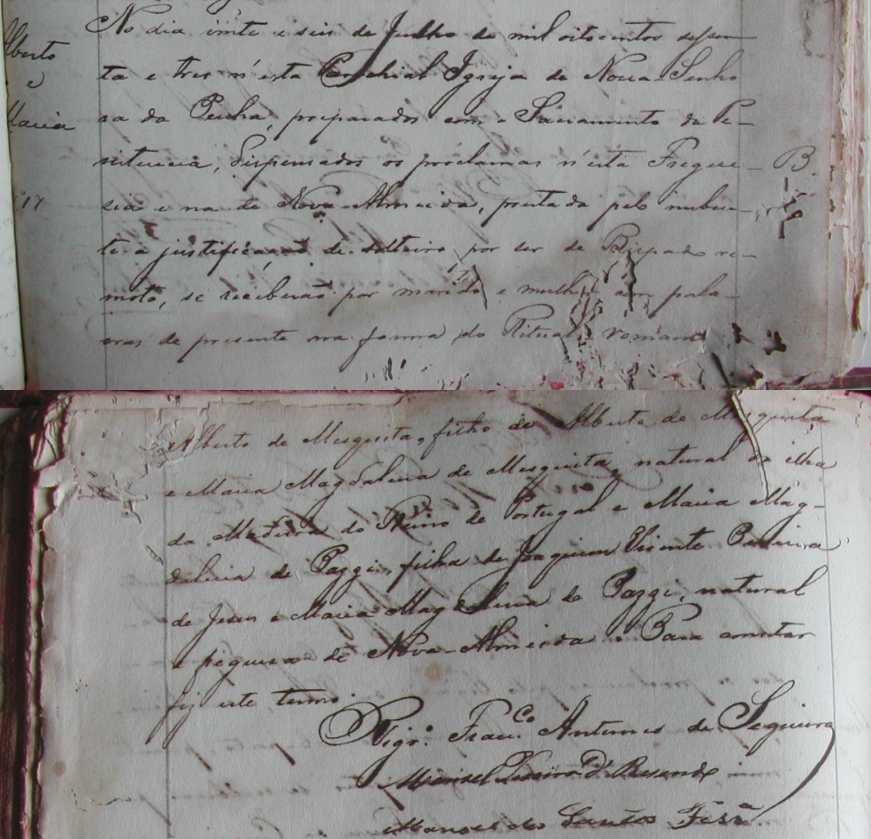 Alberto
e
Maria
17
No dia vinte e seis de Julho de mil oitocentos sessen-
ta e tres n'esta Parochial Igreja de Nossa Senho
ra da Penha, preparados com o Sacramento da Pe-
nitencia, dispensados os proclamas n'esta Fregue-
sia e na de Nova-Almeida, prestada pelo nuben-
te a justificação de solteiro por ser de Bispado re-
moto, se receberão por marido e mulher por pala-
vras de presente na forma do Ritual romano
B
Alberto de Mesquita, filho de Alberto de Mesquita
e Maria Magdalena de Mesquita, natural da Ilha
da Madeira do Reino de Portugal e Maria Mag-
dalena de Pazzi, filha de Joaquim Vicente
de Jesus e Maria Magdalena de Pazzi, natural
e de Nova-Almeida. Para constar
fiz este termo.
Vigr.º Fran.co Antunes de Sequeira
Manoel D. Resende
Manoel dos Santos Ferr.a